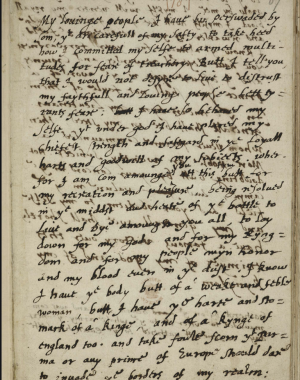 My loving people, I have bin perswaded by
som, yt are carefull of my safty, to take heed
how I committed my selfe to armed multi-
tuds for fear of treachery. But I tell you
that I would not desyre to live to distrust
my faythfull and loving people. Lett ty-
rants fear. I have so behaved my
selfe yt under god I have placed my
chiefest strength and safgard in ye loyall
harts and goodwill of my subiects. wher-
for I am com amoungst you
my recreation and pleasure being resolved
in ye middst and heate of ye battle to
live and dye amoungst you all, to lay
down for my god and for my kyng-
dom and for my people myn honor
and my blood even in ye dust. I know
I have ye body butt of a weake and feble
woman butt I have ye harte and sto-
mack of a kinge and of a kynge of
england too. and take foule scorn yt par-
ma or any prince of Europe should dare
to invade ye borders of my realm: